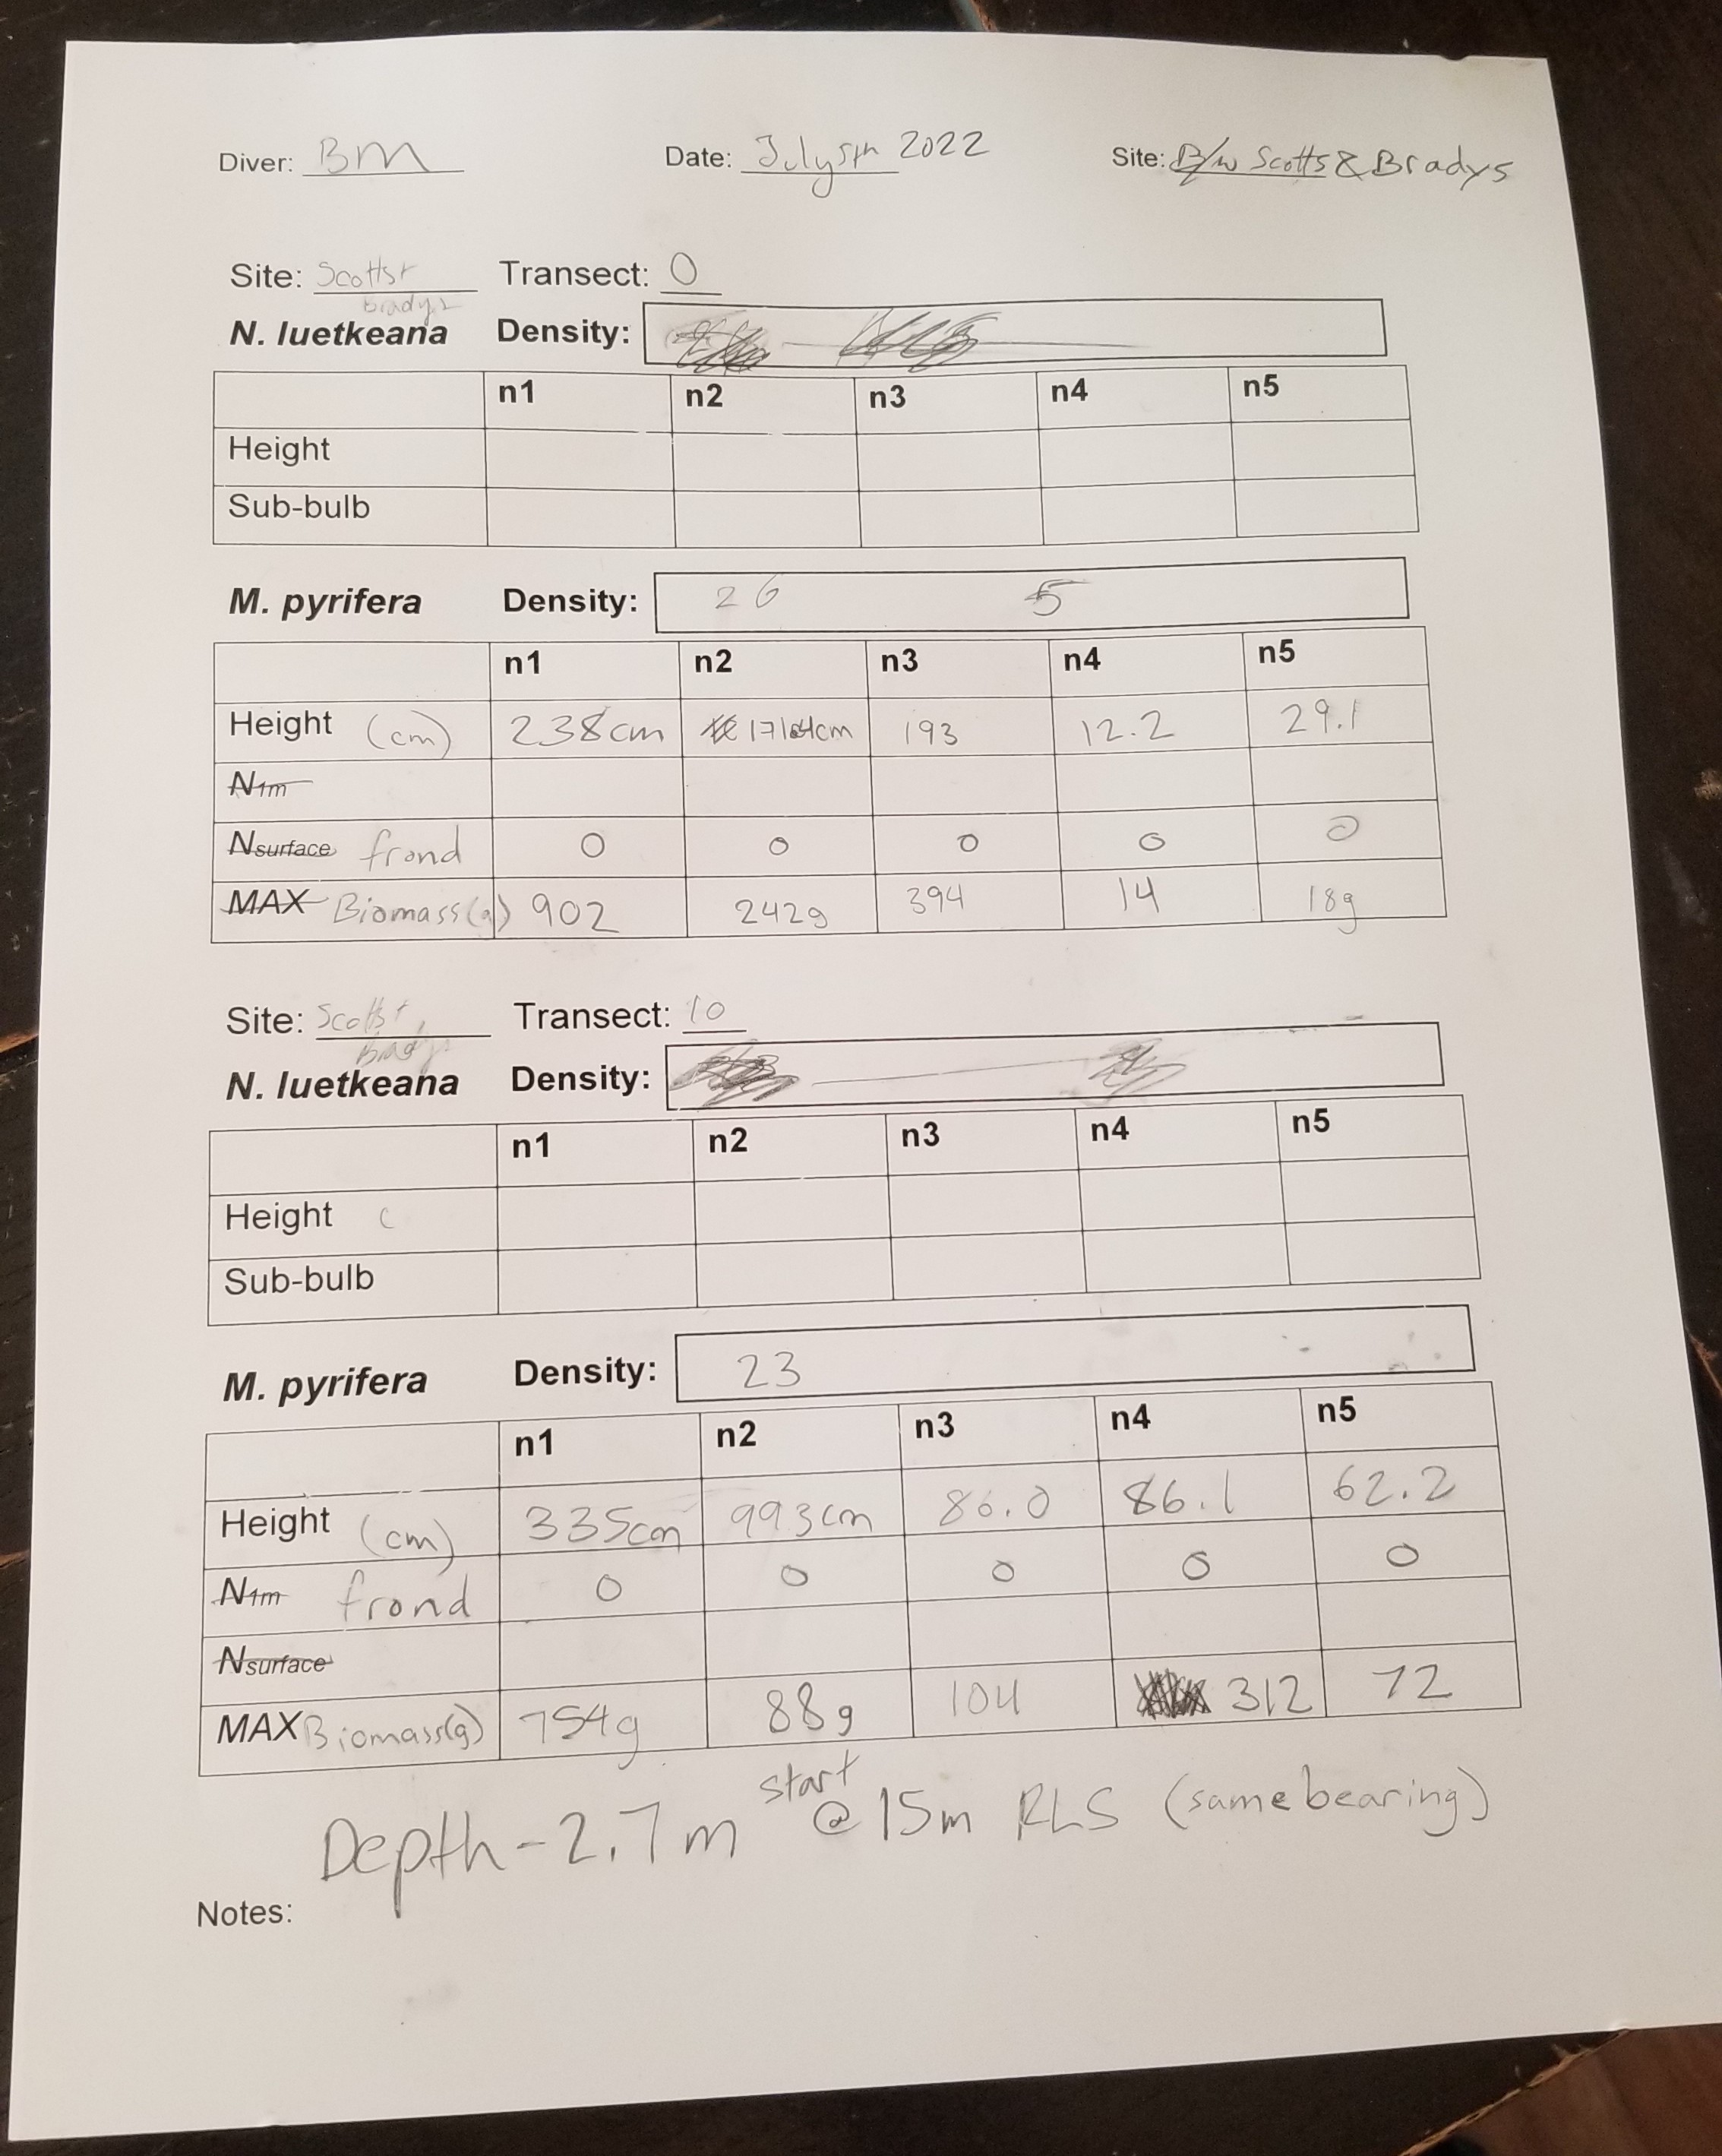 Diver: BM Date: July 5th 2022 Site: B/w Scotts & Bradys
Site: Scotts + Transect: 0
Bradys
N. luetkeana Density:
n1 n2 n3 n4 n5
Height
Sub-bulb
M. pyrifera Density: 26 5
n1 n2 n3 n4 n5
Height (cm) 238cm cm 193 12.2 29.1
N1m
Nsurface frond 0 0 0 0 0
MAX Biomass(g) 902 242g 394 14 18g
Site: Scotts + Transect: 10
Bradys
N. luetkeana Density:
n1 n2 n3 n4 n5
Height c
Sub-bulb
M. pyrifera Density: 23
n1 n2 n3 n4 n5
Height (cm) 335cm 993cm 86.0 86.1 62.2
N1m frond 0 0 0 0 0
Nsurface
MAX Biomass(g) 754g 88g 104 312 72
start
Depth-2.7m @ 15m RLS (same bearing)
Notes: